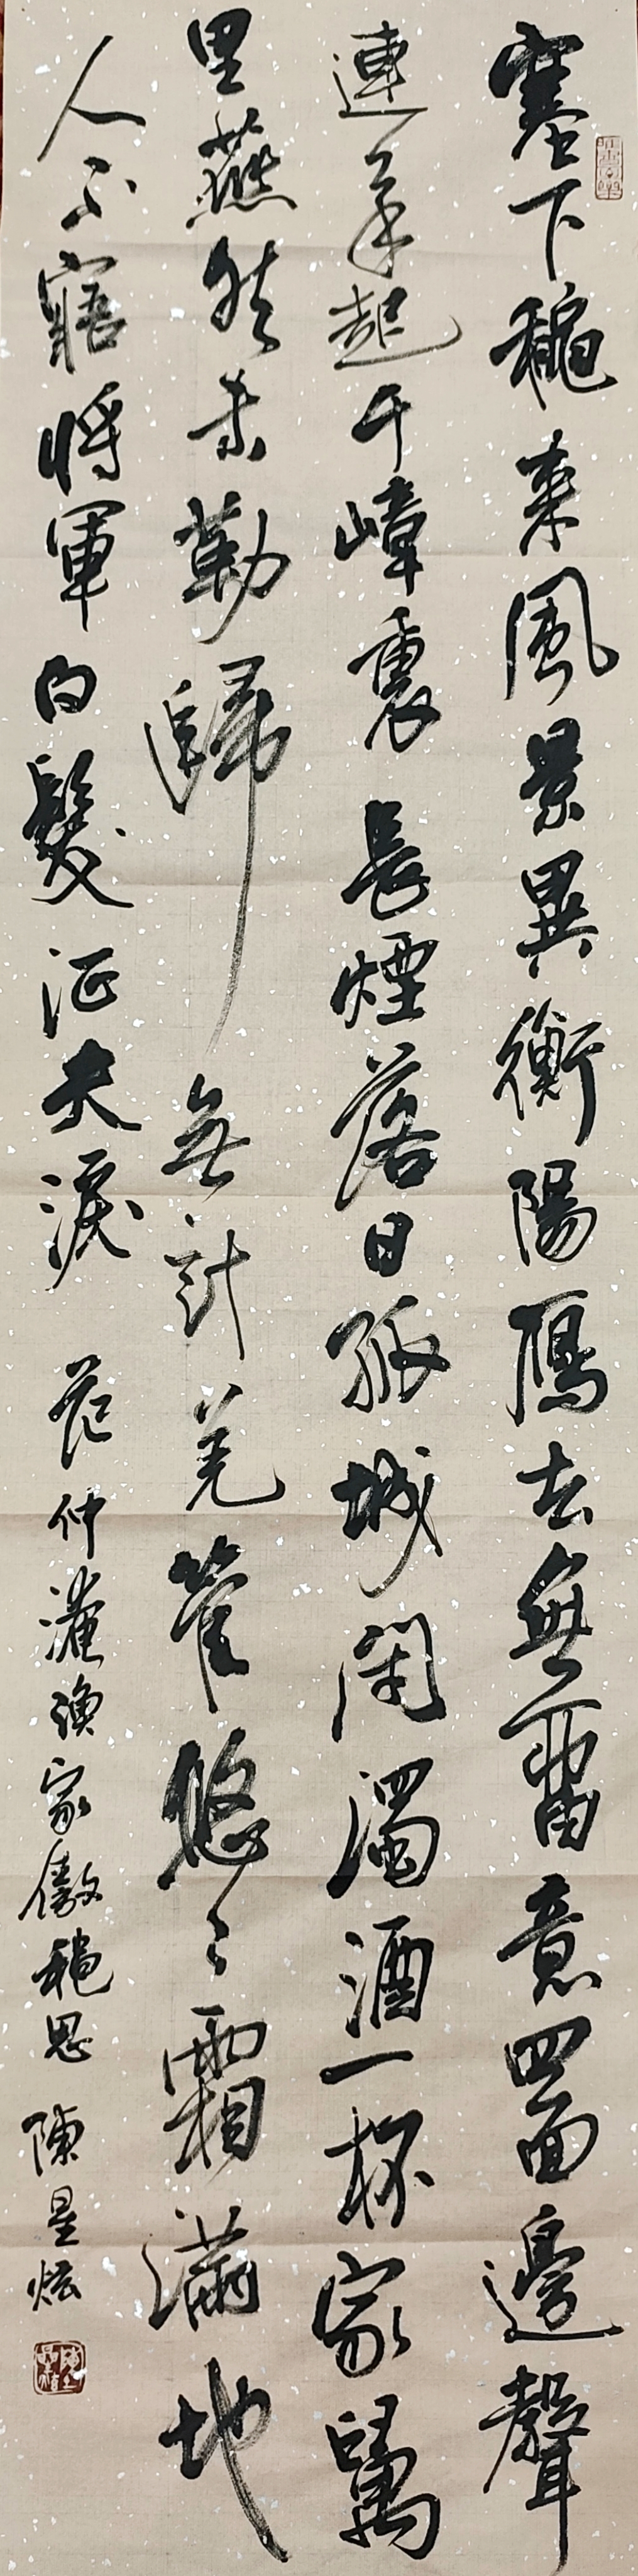 塞下穐来風景異衡陽鴈去無畱意四面邊聲
連角起千嶂裏長煙落日孤城閉濁酒一杯家萬
里燕然未勒歸無計羌管悠々霜滿地
人不寤將軍白髮征夫淚 范仲淹漁家傲穐思 陳星炫